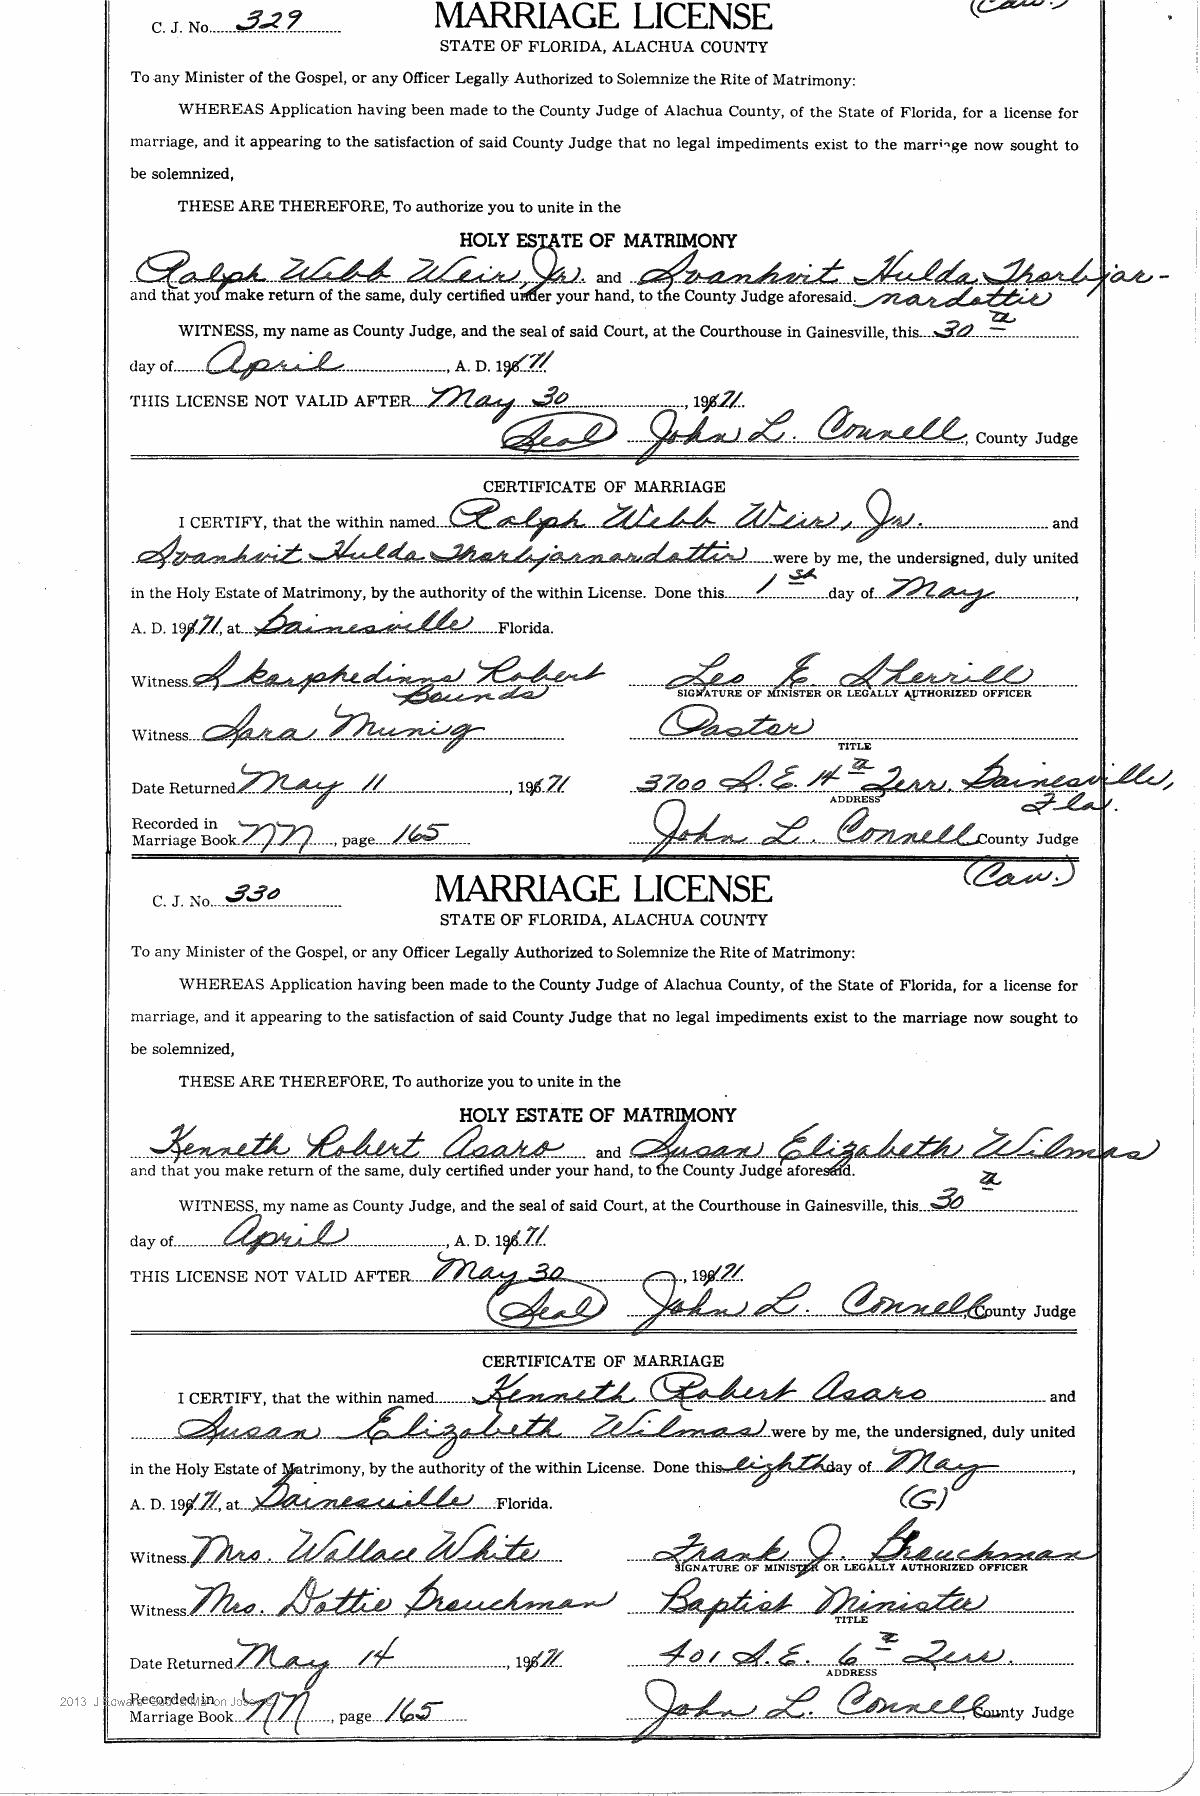 (Caw.)
C. J. No. 329 MARRIAGE LICENSE
STATE OF FLORIDA, ALACHUA COUNTY
To any Minister of the Gospel, or any Officer Legally Authorized to Solemnize the Rite of Matrimony:
WHEREAS Application having been made to the County Judge of Alachua County, of the State of Florida, for a license for
marriage, and it appearing to the satisfaction of said County Judge that no legal impediments exist to the marriage now sought to
be solemnized,
THESE ARE THEREFORE, To authorize you to unite in the
HOLY ESTATE OF MATRIMONY
Ralph Webb Weir, Jr. and Svanhvit Hulda Thorbjar-
and that you make return of the same, duly certified under your hand, to the County Judge aforesaid. nardottir
WITNESS, my name as County Judge, and the seal of said Court, at the Courthouse in Gainesville, this 30th
day of April, A. D. 1971
THIS LICENSE NOT VALID AFTER May 30, 1971.
(Seal) John L. Connell, County Judge
CERTIFICATE OF MARRIAGE
I CERTIFY, that the within named Ralph Webb Weir, Jr. and
Svanhvit Hulda Thorbjarnardottir were by me, the undersigned, duly united
in the Holy Estate of Matrimony, by the authority of the within License. Done this 1st day of May,
A. D. 1971, at Gainesville Florida.
Witness Skarphedinns Robert Leo E. Sherrill
Bounds SIGNATURE OF MINISTER OR LEGALLY AUTHORIZED OFFICER
Witness Sara Munig Pastor
TITLE
Date Returned May 11, 1971 3700 S.E. 14th Terr. Gainesville,
ADDRESS Fla.
Recorded in
Marriage Book NN, page 165 John L. Connell County Judge
(Caw.)
C. J. No. 330 MARRIAGE LICENSE
STATE OF FLORIDA, ALACHUA COUNTY
To any Minister of the Gospel, or any Officer Legally Authorized to Solemnize the Rite of Matrimony:
WHEREAS Application having been made to the County Judge of Alachua County, of the State of Florida, for a license for
marriage, and it appearing to the satisfaction of said County Judge that no legal impediments exist to the marriage now sought to
be solemnized,
THESE ARE THEREFORE, To authorize you to unite in the
HOLY ESTATE OF MATRIMONY
Kenneth Robert Asaro and Susan Elizabeth Wilmas
and that you make return of the same, duly certified under your hand, to the County Judge aforesaid.
WITNESS, my name as County Judge, and the seal of said Court, at the Courthouse in Gainesville, this 30th
day of April, A. D. 1971.
THIS LICENSE NOT VALID AFTER May 30, 1971.
(Seal) John L. Connell, County Judge
CERTIFICATE OF MARRIAGE
I CERTIFY, that the within named Kenneth Robert Asaro and
Susan Elizabeth Wilmas were by me, the undersigned, duly united
in the Holy Estate of Matrimony, by the authority of the within License. Done this eighth day of May,
A. D. 1971, at Gainesville Florida. (G)
Witness Mrs. Wallace White Frank J. Brouchman
SIGNATURE OF MINISTER OR LEGALLY AUTHORIZED OFFICER
Witness Mrs. Dottie Brouchman Baptist Minister
TITLE
Date Returned May 14, 1971. 401 S.E. 6th Terr.
ADDRESS
Recorded in
Marriage Book NN, page 165 John L. Connell, County Judge